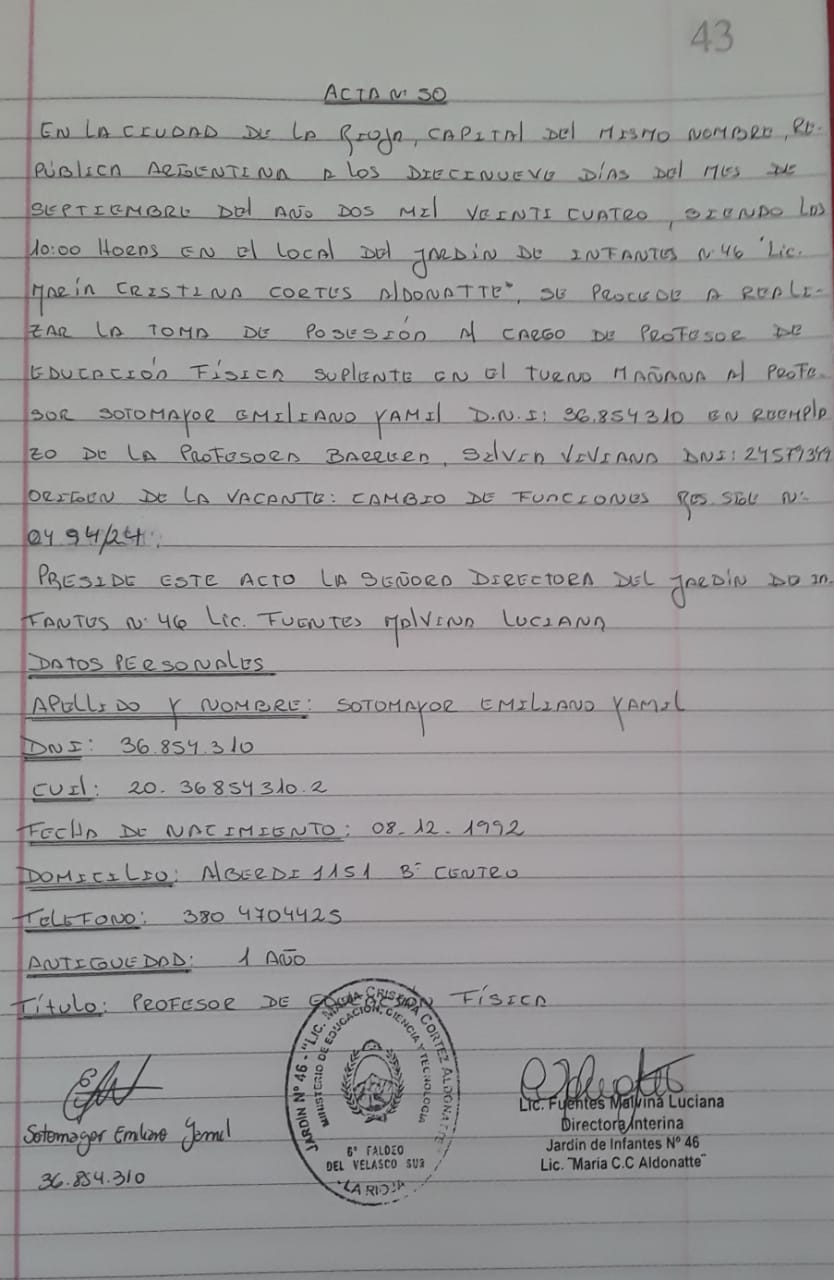 43
ACTA N° 50
EN LA CIUDAD DE LA RIOJA, CAPITAL DEL MISMO NOMBRE, RE-
PÚBLICA ARGENTINA A LOS DIECINUEVE DÍAS DEL MES DE
SEPTIEMBRE DEL AÑO DOS MIL VEINTI CUATRO, SIENDO LAS
10:00 HORAS EN EL LOCAL DEL JARDÍN DE INFANTES N°46 "LIC.
MARÍA CRISTINA CORTES ALDONATTE", SE PROCEDE A REALI-
ZAR LA TOMA DE POSESIÓN AL CARGO DE PROFESOR DE
EDUCACIÓN FÍSICA SUPLENTE EN EL TURNO MAÑANA AL PROFE-
SOR SOTOMAYOR EMILIANO YAMIL D.N.I: 36.854310 EN REEMPLA
ZO DE LA PROFESORA BARRERA, SILVIA VIVIANA DNI:
ORIGEN DE LA VACANTE: CAMBIO DE FUNCIONES RES. SGE N°
0494/24.
PRESIDE ESTE ACTO LA SEÑORA DIRECTORA DEL JARDÍN DE IN-
FANTES N° 46 LIC. FUENTES MALVINA LUCIANA
DATOS PERSONALES
APELLIDO Y NOMBRE: SOTOMAYOR EMILIANO YAMIL
DNI: 36.854.310
CUIL: 20. 36854310.2
FECHA DE NACIMIENTO: 08-12. 1992
DOMICILIO: ALBERDI 1151 B° CENTRO
TELEFONO: 380 4704425
ANTIGUEDAD: 1 AÑO
TÍTULO: PROFESOR DE EDUCACIÓN FÍSICA
JARDIN N° 46 - "LIC. MARIA CRISTINA CORTEZ ALDONATTE"
MINISTERIO DE EDUCACIÓN, CIENCIA Y TECNOLOGIA
B° FALDEO
DEL VELASCO SUR
LA RIOJA
Sotomayor Emiliano Yamil
36.854.310
Lic. Fuentes Malvina Luciana
Directora Interina
Jardin de Infantes N° 46
Lic. "Maria C.C Aldonatte"